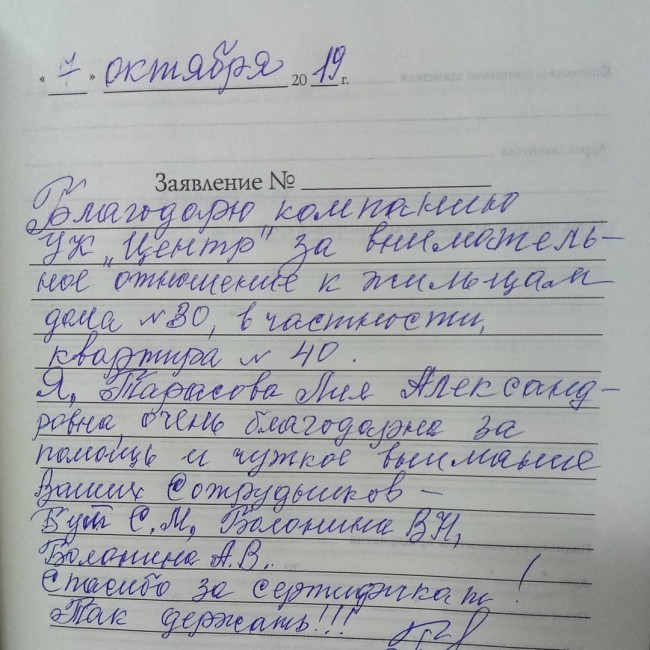 « 7 » октября 2019 г.
Заявление №
Благодарю компанию
УК „Центр" за вниматель-
ное отношение к жильцам
дома №30, в частности,
квартира № 40.
Я, Тарасова Лия Александ-
ровна, очень благодарна за
помощь и чуткое внимание
Ваших Сотрудников -
С.М,
Болонина А.В.
Спасибо за сертификат!
Так держать!!!